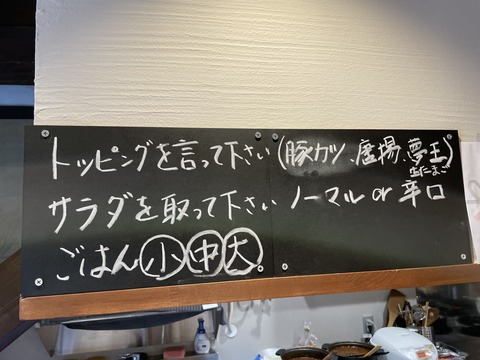 トッピングを言って下さい(豚カツ、唐揚、夢王)
生たまご
サラダを取って下さい ノーマル or 辛口
ごはん 小 中 大